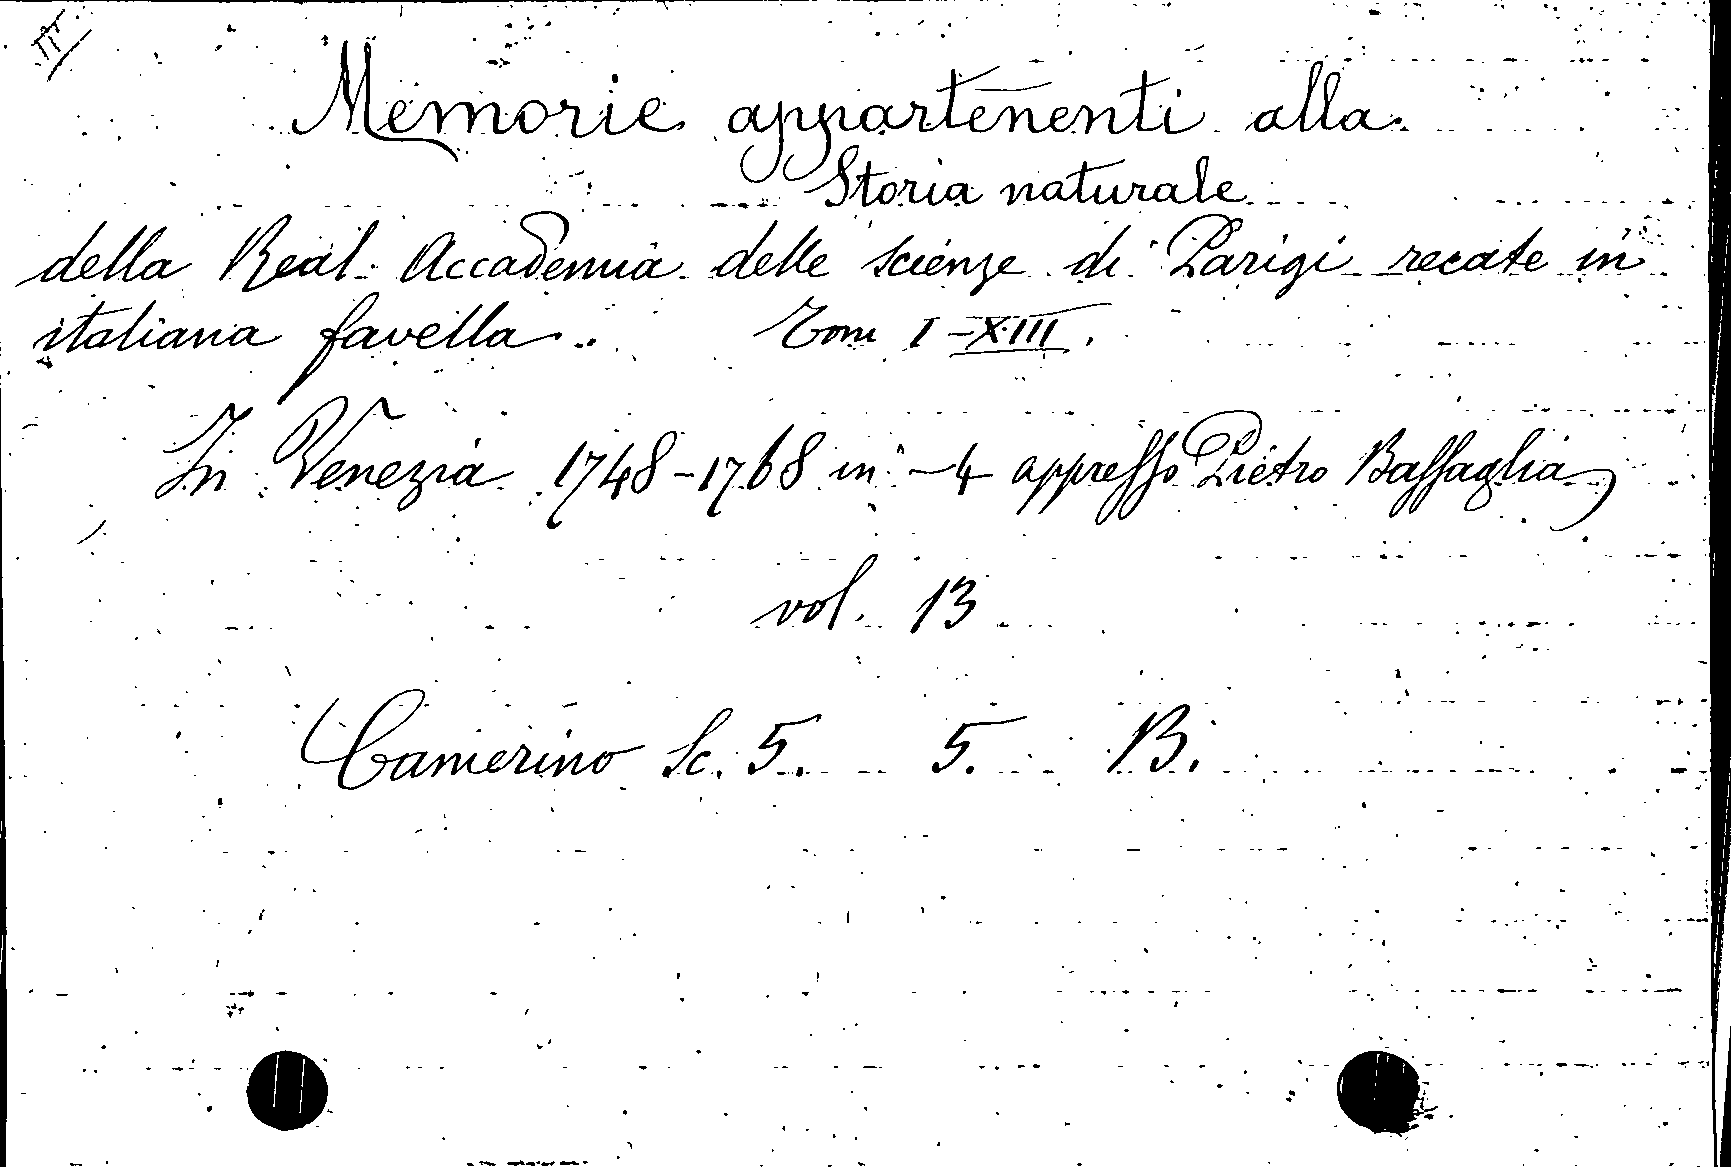 Memorie appartenenti alla
Storia naturale
della Real Accademia delle scienze di Parigi recate in
italiana favella. Tom I-XIII.
In Venezia 1748-1768 in-4 appresso Pietro Bassaglia
vol. 13
Camerino Sc. 5. 5. B.